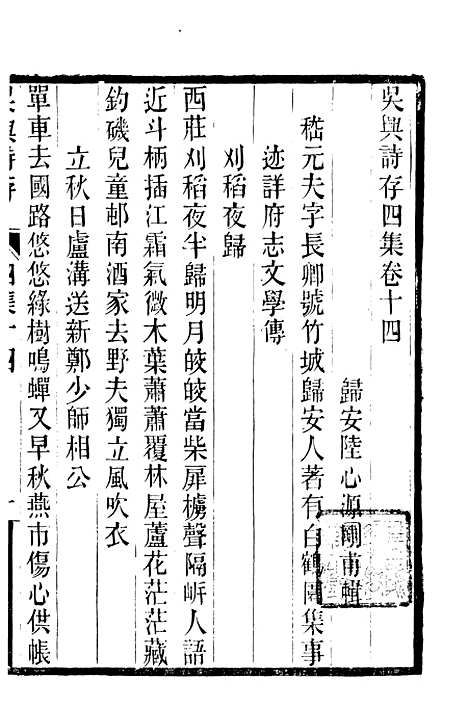 吳興詩存四集卷十四
歸安陸心源剛甫輯
嵇元夫字長卿號竹城歸安人著有白鶴園集事
迹詳府志文學傳
刈稻夜歸
西莊刈稻夜半歸明月皎皎當柴扉櫓聲隔㟁人語
近斗柄插江霜氣微木葉蕭蕭覆林屋蘆花茫茫藏
釣磯兒童邨南酒家去野夫獨立風吹衣
立秋日盧溝送新鄭少師相公
單車去國路悠悠綠樹鳴蟬又早秋燕市傷心供帳
吳興詩存 四集十四 一